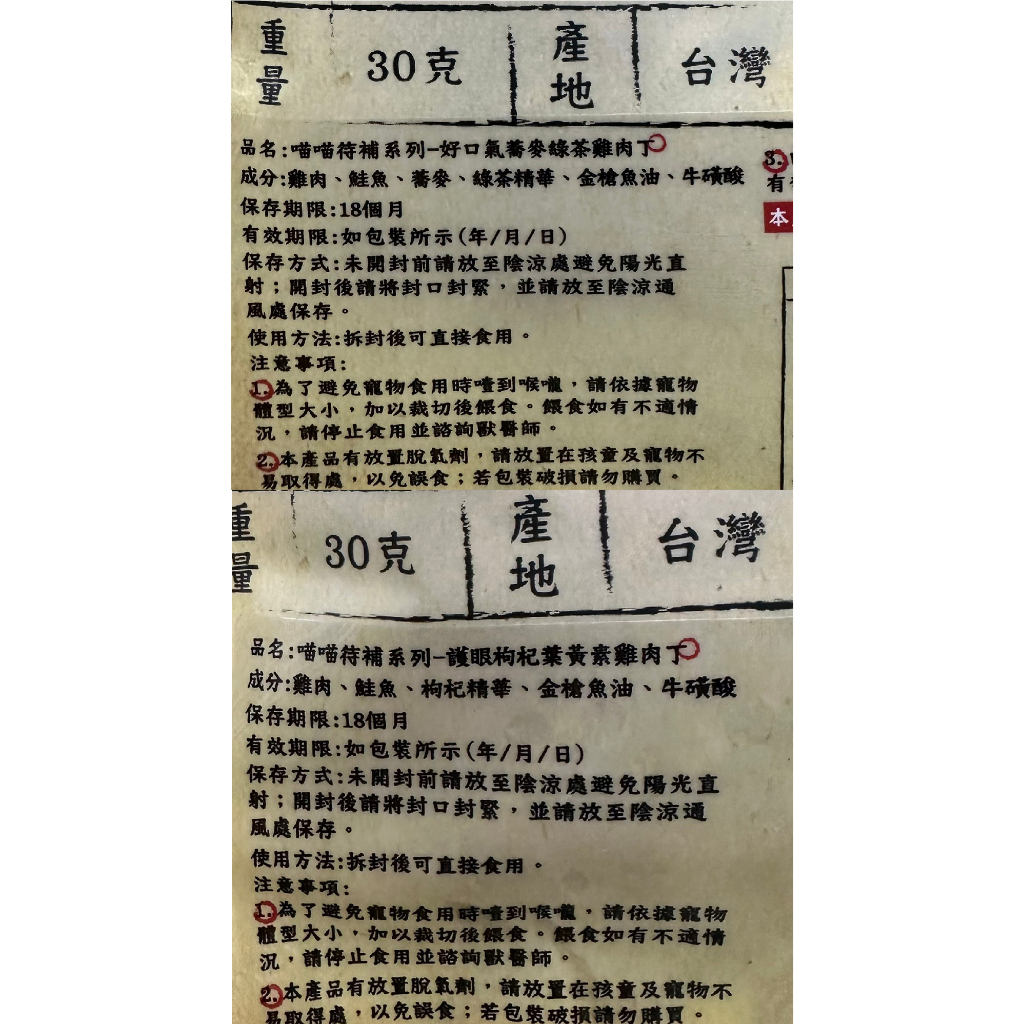 重量 30克 產地 台灣
品名:喵喵待補系列-好口氣蕎麥綠茶雞肉丁
成分:雞肉、鮭魚、蕎麥、綠茶精華、金槍魚油、牛磺酸
保存期限:18個月
有效期限:如包裝所示(年/月/日)
保存方式:未開封前請放至陰涼處避免陽光直
射；開封後請將封口封緊，並請放至陰涼通
風處保存。
使用方法:拆封後可直接食用。
注意事項:
1.為了避免寵物食用時噎到喉嚨，請依據寵物
體型大小，加以裁切後餵食。餵食如有不適情
況，請停止食用並諮詢獸醫師。
2.本產品有放置脫氧劑，請放置在孩童及寵物不
易取得處，以免誤食；若包裝破損請勿購買。
3.
有
本
重量 30克 產地 台灣
品名:喵喵待補系列-護眼枸杞葉黃素雞肉丁
成分:雞肉、鮭魚、枸杞精華、金槍魚油、牛磺酸
保存期限:18個月
有效期限:如包裝所示(年/月/日)
保存方式:未開封前請放至陰涼處避免陽光直
射；開封後請將封口封緊，並請放至陰涼通
風處保存。
使用方法:拆封後可直接食用。
注意事項:
1.為了避免寵物食用時噎到喉嚨，請依據寵物
體型大小，加以裁切後餵食。餵食如有不適情
況，請停止食用並諮詢獸醫師。
2.本產品有放置脫氧劑，請放置在孩童及寵物不
易取得處，以免誤食；若包裝破損請勿購買。